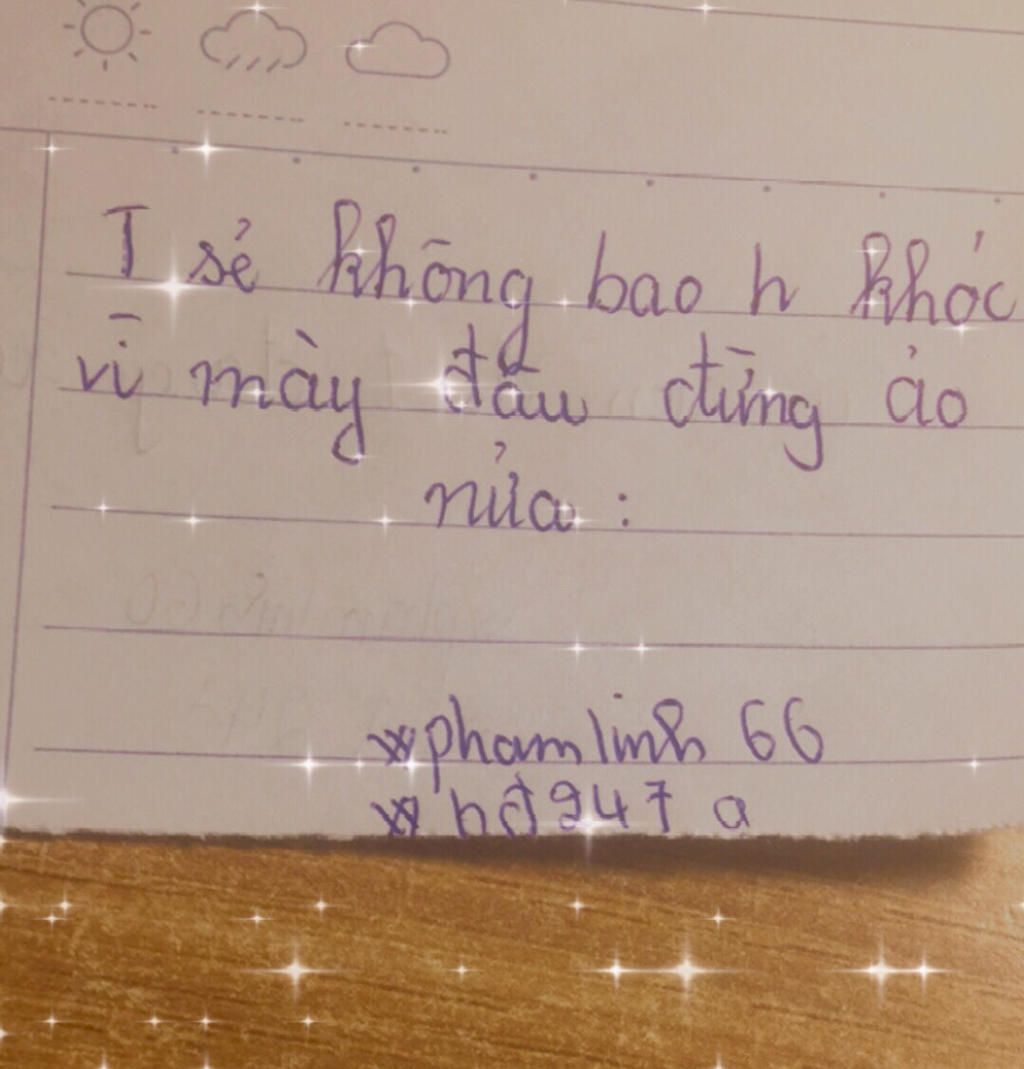 T sẻ không bao h khóc
vì mày đâu đừng ảo
nửa :
phamlinh 66
hđ247 a